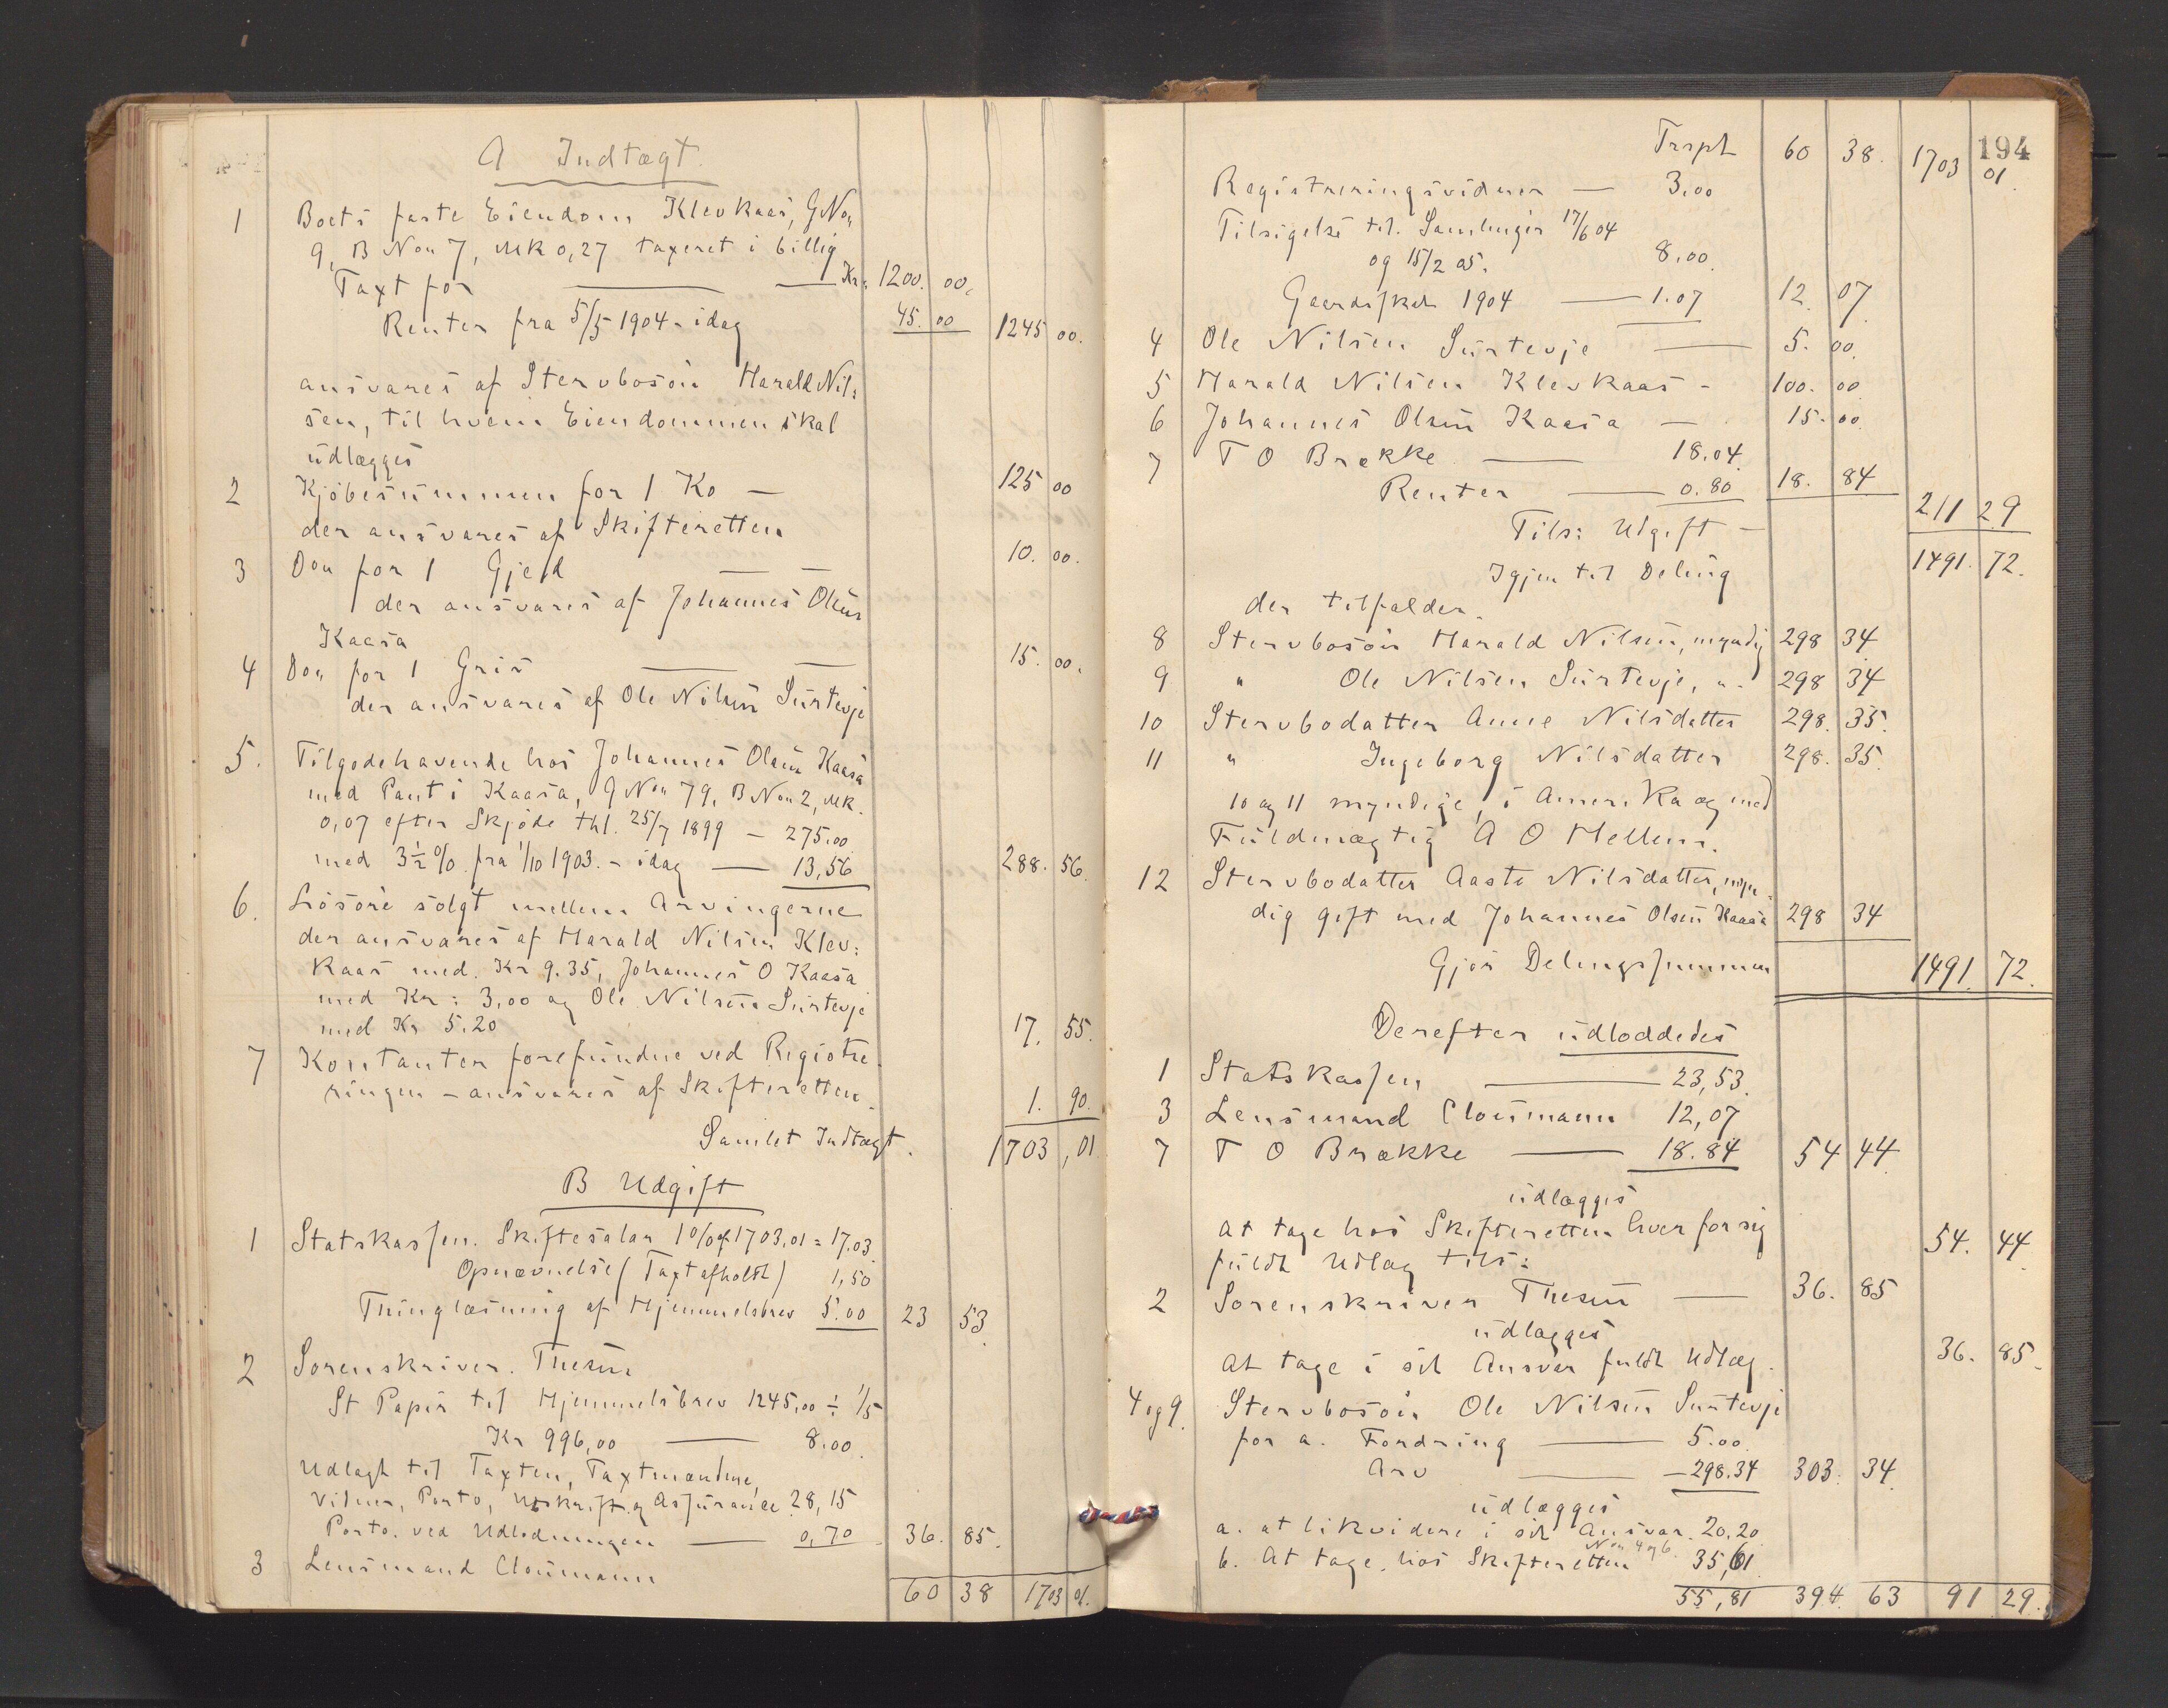 A Indtægt.
1 Boets faste Eiendom Klevkaas, GNo
9, B No 7, Mk 0,27 taxeret i billig
Taxt for Kr. 1200. 00.
Renter fra 5/5 1904 - idag 45. 00 1245 00.
ansvares af Stervbosøn Harald Nil:
sen, til hvem Eiendommen skal
udlægges
2 Kjøbesummen for 1 Ko — 125 00
der ansvares af Skifteretten
3 Do for 1 Gjeld — 10. 00.
der ansvares af Johannes Olsen
Kaasa
4 Do for 1 Gris — 15. 00.
der ansvares af Ole Nilsen Surtevje
5. Tilgodehavende hos Johannes Olsen Kaasa
med Pant i Kaasa, GNo 79, B No 2, Mk.
0,07 efter Skjøde thl. 25/7 1899 — 275.00
med 3½ % fra 1/10 1903 - idag — 13,56 288. 56.
6. Løsøre solgt mellem Arvingerne
der ansvares af Harald Nilsen Klev:
kaas med Kr 9.35, Johannes O Kaasa
med Kr: 3,00 og Ole Nilsen Surtevje
med Kr 5.20 17. 55.
7 Kontanter forefundne ved Registre
ringen - ansvares af Skifteretten. 1. 90.
Samlet Indtægt. 1703,01
B Udgift
1 Statskassen. Skiftesalær 1% af 1703,01 = 17.03.
Opnævnelse (Taxt afholdt) 1,50
Thinglæsning af Hjemmelsbrev 5.00 23 53.
2 Sorenskriver Thesen
St Papir til Hjemmelsbrev 1245,00 ÷ 1/5
Kr 996,00 — 8.00.
Udlagt til Taxten, Taxtmændene,
Vidner, Porto, Udskrift og Assurance 28,15
Porto ved Udlodningen — 0,70 36. 85.
3 Lensmand Cloumann
60 38 1703 01.
194
Trspt 60 38. 1703 01.
Registreringsvidner — 3.00
Tilsigelse til Samlinger 17/6 04
og 15/2 05. 8.00.
Gaardsskat 1904 — 1.07 12. 07.
4 Ole Nilsen Surtevje — 5. 00.
5 Harald Nilsen Klevkaas - 100. 00
6 Johannes Olsen Kaasa — 15. 00.
7 T O Brække — 18.04.
Renter — 0.80 18. 84
Tils: Udgift — 211 29
Igjen til Deling 1491. 72.
der tilfalder.
8 Stervbosøn Harald Nilsen, myndig 298 34
9 " Ole Nilsen Surtevje, " - 298 34
10 Stervbodatter Anne Nilsdatter 298. 35.
11 " Ingeborg Nilsdatter 298. 35.
10 og 11 myndige, i Amerika og med
Fuldmægtig A O Hellem.
12 Stervbodatter Aaste Nilsdatter, myn
dig gift med Johannes Olsen Kaasa 298 34
Gjør Delingssummen 1491. 72.
Derefter udloddedes
1 Statskassen — 23,53.
3 Lensmand Cloumann 12,07
7 T O Brække — 18.84 54 44.
udlægges
At tage hos Skifteretten hver for sig
fuldt Udlæg tils: 54. 44.
2 Sorenskriver Thesen — 36. 85
udlægges
At tage i sit Ansvar fuldt Udlæg. 36. 85.
4 og 9. Stervbosøn Ole Nilsen Surtevje
for a. Fordring — 5.00.
Arv — 298.34 303. 34.
udlægges
a. at likvidere i sit Ansvar 20.20
No 4 og 6.
b. At tage hos Skifteretten 35,61
55,81 394. 63 91 29.